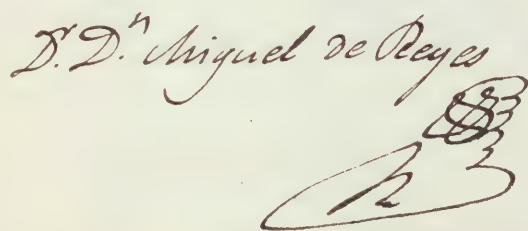 Dr. Dn. Miguel de Reyes